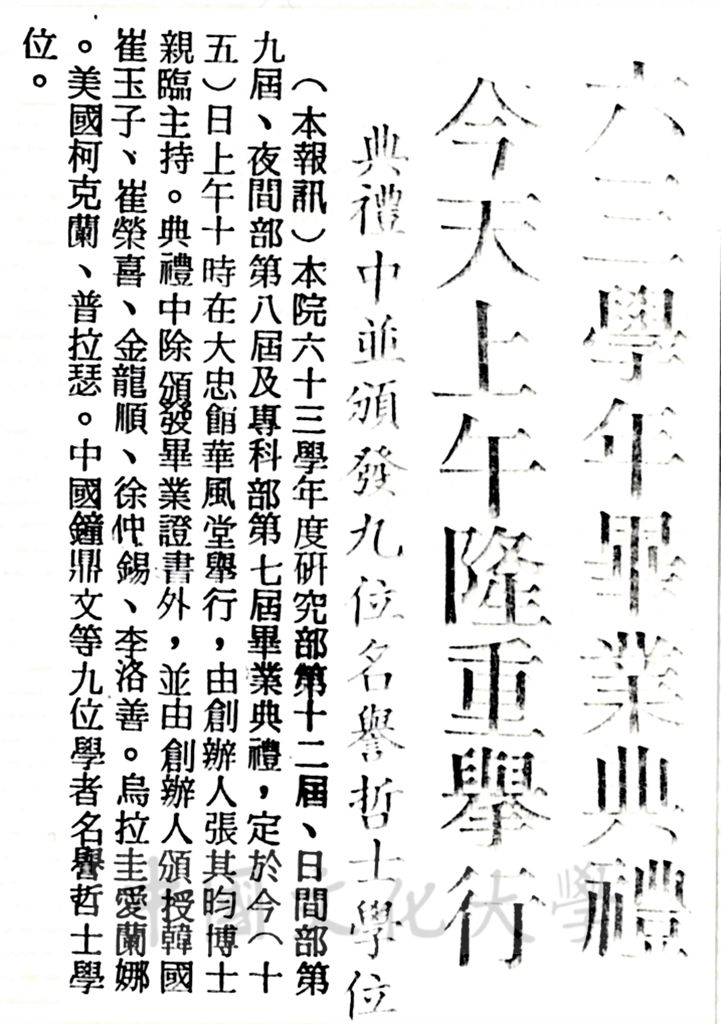 六三學年畢業典禮
今天上午隆重舉行
典禮中並頒發九位名譽哲士學位
（本報訊）本院六十三學年度研究部第十二屆、日間部第
九屆、夜間部第八屆及專科部第七屆畢業典禮，定於今（十
五）日上午十時在大忠館華風堂舉行，由創辦人張其昀博士
親臨主持。典禮中除頒發畢業證書外，並由創辦人頒授韓國
崔玉子、崔榮喜、金龍順、徐仲錫、李洛善。烏拉圭愛蘭娜
。美國柯克蘭、普拉瑟。中國鐘鼎文等九位學者名譽哲士學
位。
中國文化大學